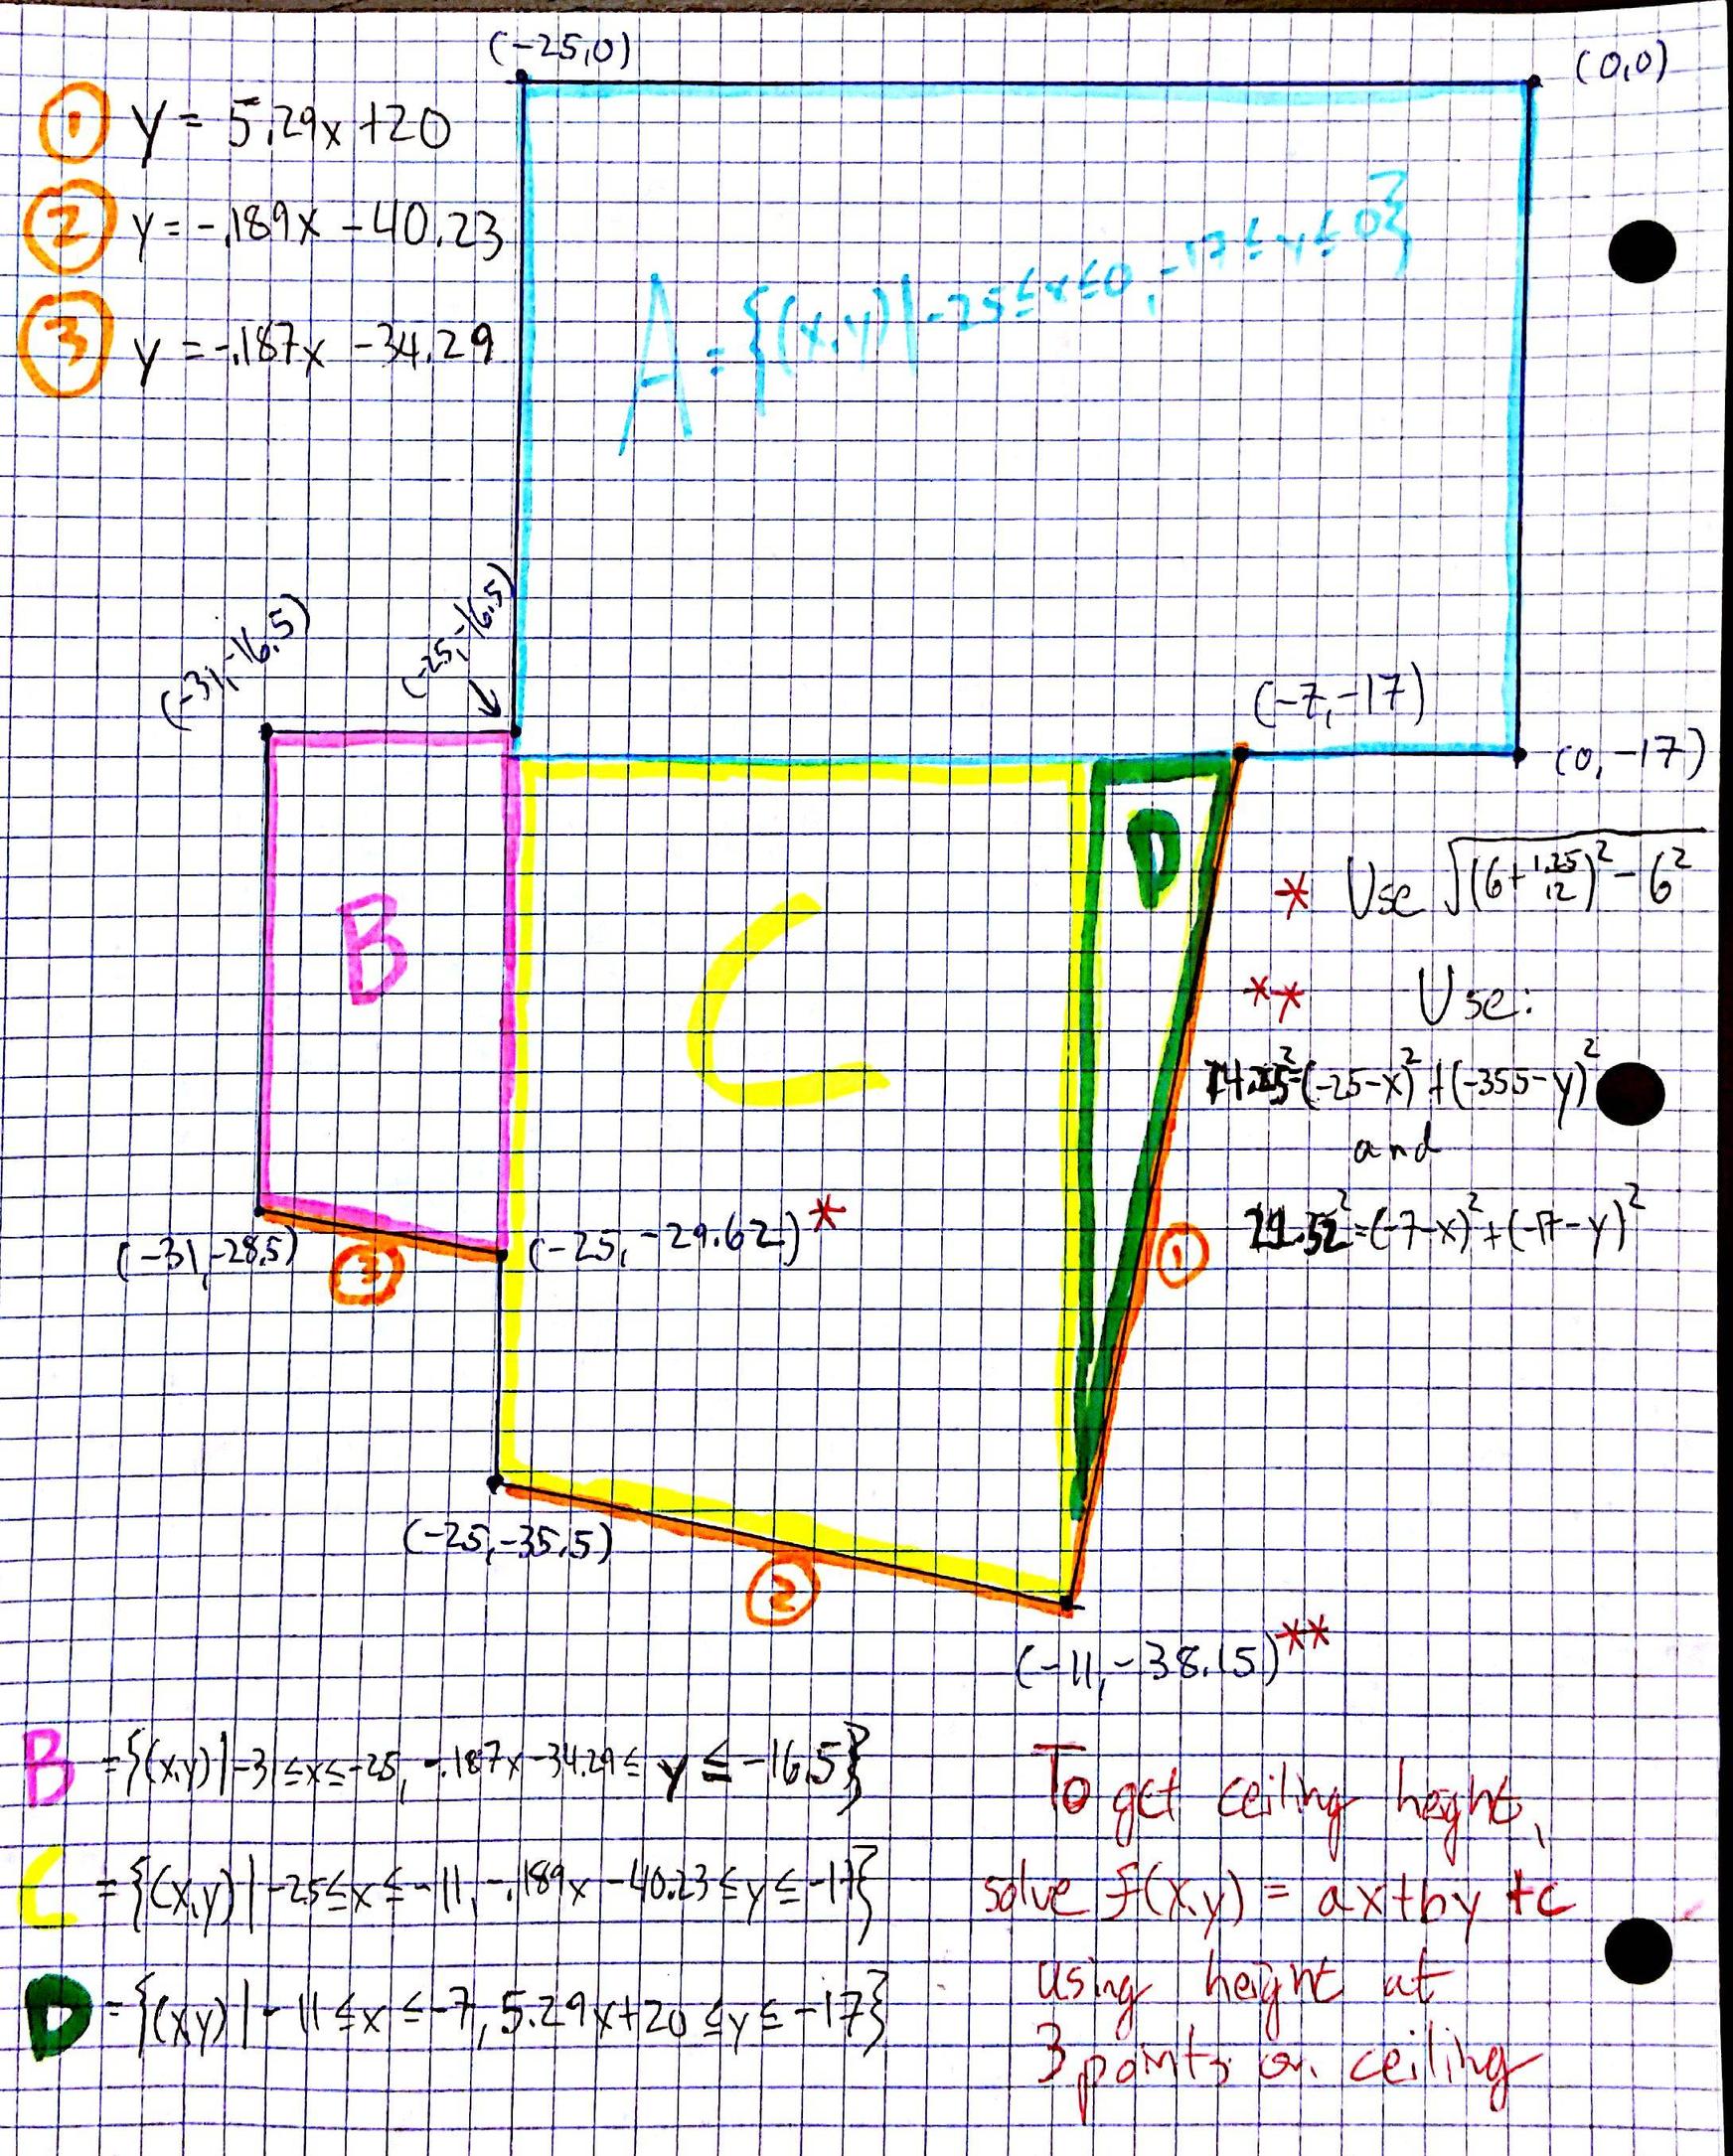 (-25,0)
(0,0)
① y = 5.29x +20
② y = -.189x -40.23
③ y = -.187x -34.29
A = {(x,y)| -25≤x≤0, -17≤y≤0}
(-31,-16.5)
(-25,-16.5)
(-7,-17)
(0,-17)
B
C
D
* Use √((6+1.25/12)²-6²)
** Use:
14.25²=(-25-x)²+(-35.5-y)²
and
21.52²=(-7-x)²+(-17-y)²
(-31,-28.5)
③
(-25,-29.62)*
①
(-25,-35.5)
②
(-11,-38.15)**
B ={(x,y)|-31≤x≤-25, -.187x-34.29≤ y ≤ -16.5}
C = {(x,y)| -25≤x≤-11, -.189x -40.23≤y≤-17}
D = {(x,y)| -11≤x≤-7, 5.29x+20≤y≤-17}
To get ceiling height,
solve f(x,y) = ax+by+c
using height at
3 points on ceiling